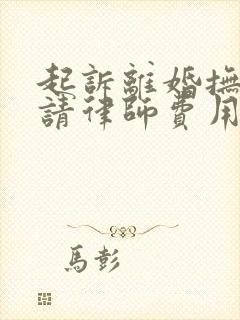 起訴離婚撫
請律師費用
馬彭